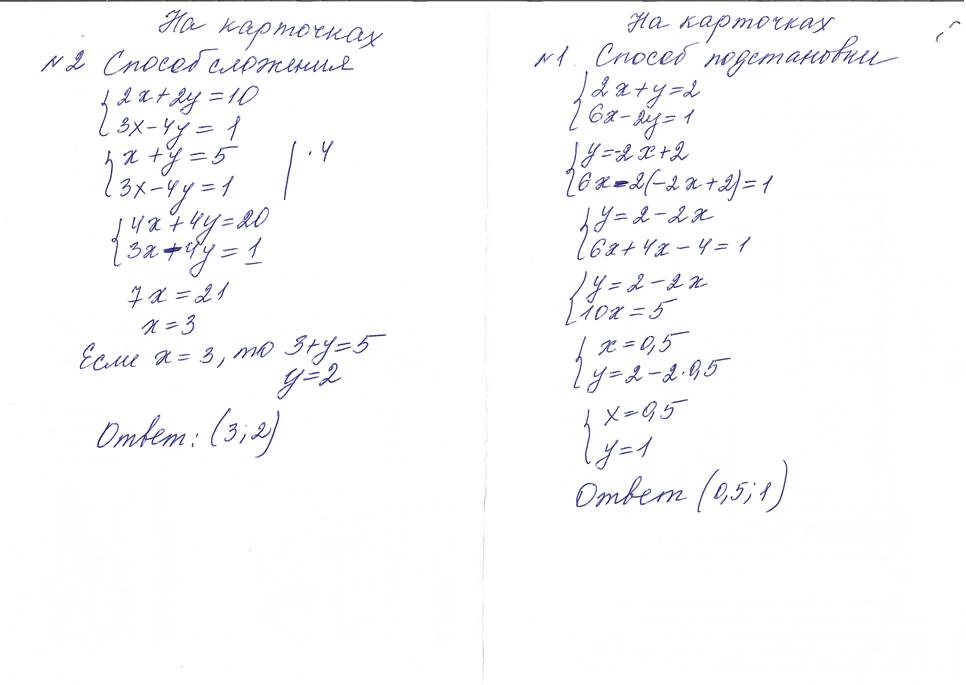 На карточках
№2 Способ сложения
2x+2y=10
3x-4y=1
x+y=5 | ·4
3x-4y=1
4x+4y=20
3x-4y=1
7x=21
x=3
Если x=3, то 3+y=5
y=2
Ответ: (3;2)
На карточках
№1 Способ подстановки
2x+y=2
6x-2y=1
y=-2x+2
6x-2(-2x+2)=1
y=2-2x
6x+4x-4=1
y=2-2x
10x=5
x=0,5
y=2-2·0,5
x=0,5
y=1
Ответ (0,5;1)